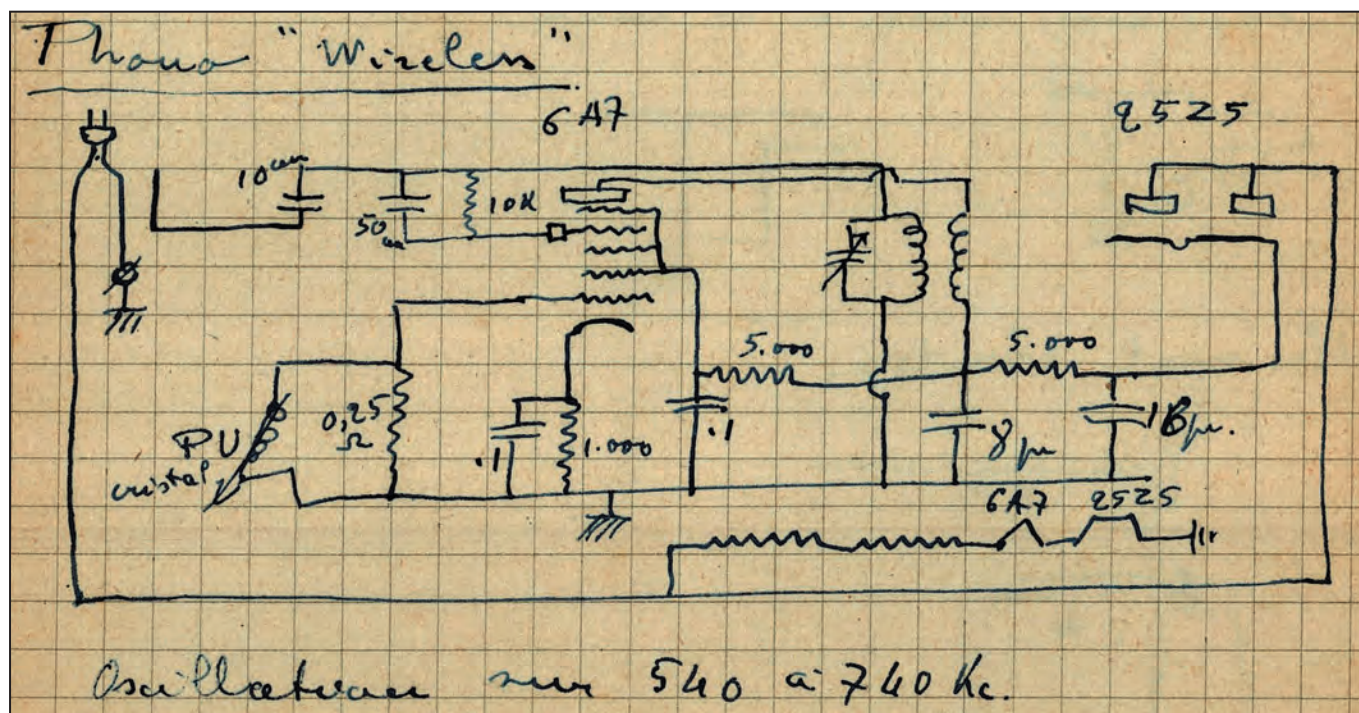 Phono "Wireless"
6A7
2525
10cm
50cm
10K
5.000
5.000
PU
cristal
0,25
Ω
.1
1.000
.1
8µ
16µ.
6A7
2525
Oscillation sur 540 à 740 Kc.